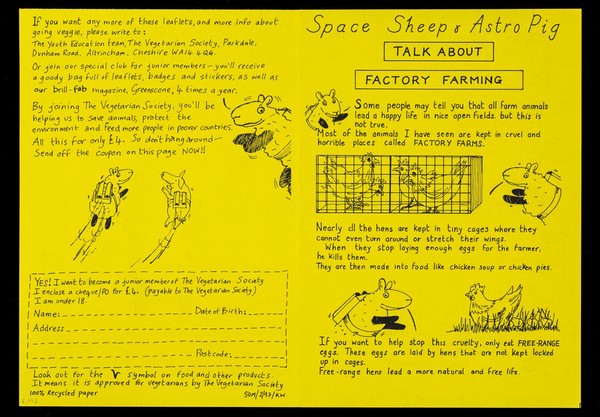 If you want any more of these leaflets, and more info about
going veggie, please write to:
The Youth Education team, The Vegetarian Society, Parkdale,
Dunham Road, Altrincham, Cheshire WA14 4QG.
Or join our special club for junior members – you'll receive
a goody bag full of leaflets, badges and stickers, as well as
our brill-fab magazine, Greenscene, 4 times a year.
By joining The Vegetarian Society, you'll be
helping us to save animals, protect the
environment and feed more people in poorer countries.
All this for only £4. So don't hang around –
Send off the coupon on this page NOW!!
YES! I want to become a junior member of The Vegetarian Society
I enclose a cheque/PO for £4. (payable to The Vegetarian Society)
I am under 18.
Name: Date of Birth:
Address
Postcode:
Look out for the V symbol on food and other products.
It means it is approved for vegetarians by The Vegetarian Society
100% Recycled paper 50M/2/93/KW
Space Sheep & Astro Pig
TALK ABOUT
FACTORY FARMING
Some people may tell you that all farm animals
lead a happy life in nice open fields. but this is
not true.
Most of the animals I have seen are kept in cruel and
horrible places called FACTORY FARMS.
Nearly all the hens are kept in tiny cages where they
cannot even turn around or stretch their wings.
When they stop laying enough eggs for the farmer,
he kills them.
They are then made into food like chicken soup or chicken pies.
If you want to help stop this cruelty, only eat FREE-RANGE
eggs. These eggs are laid by hens that are not kept locked
up in cages.
Free-range hens lead a more natural and free life.